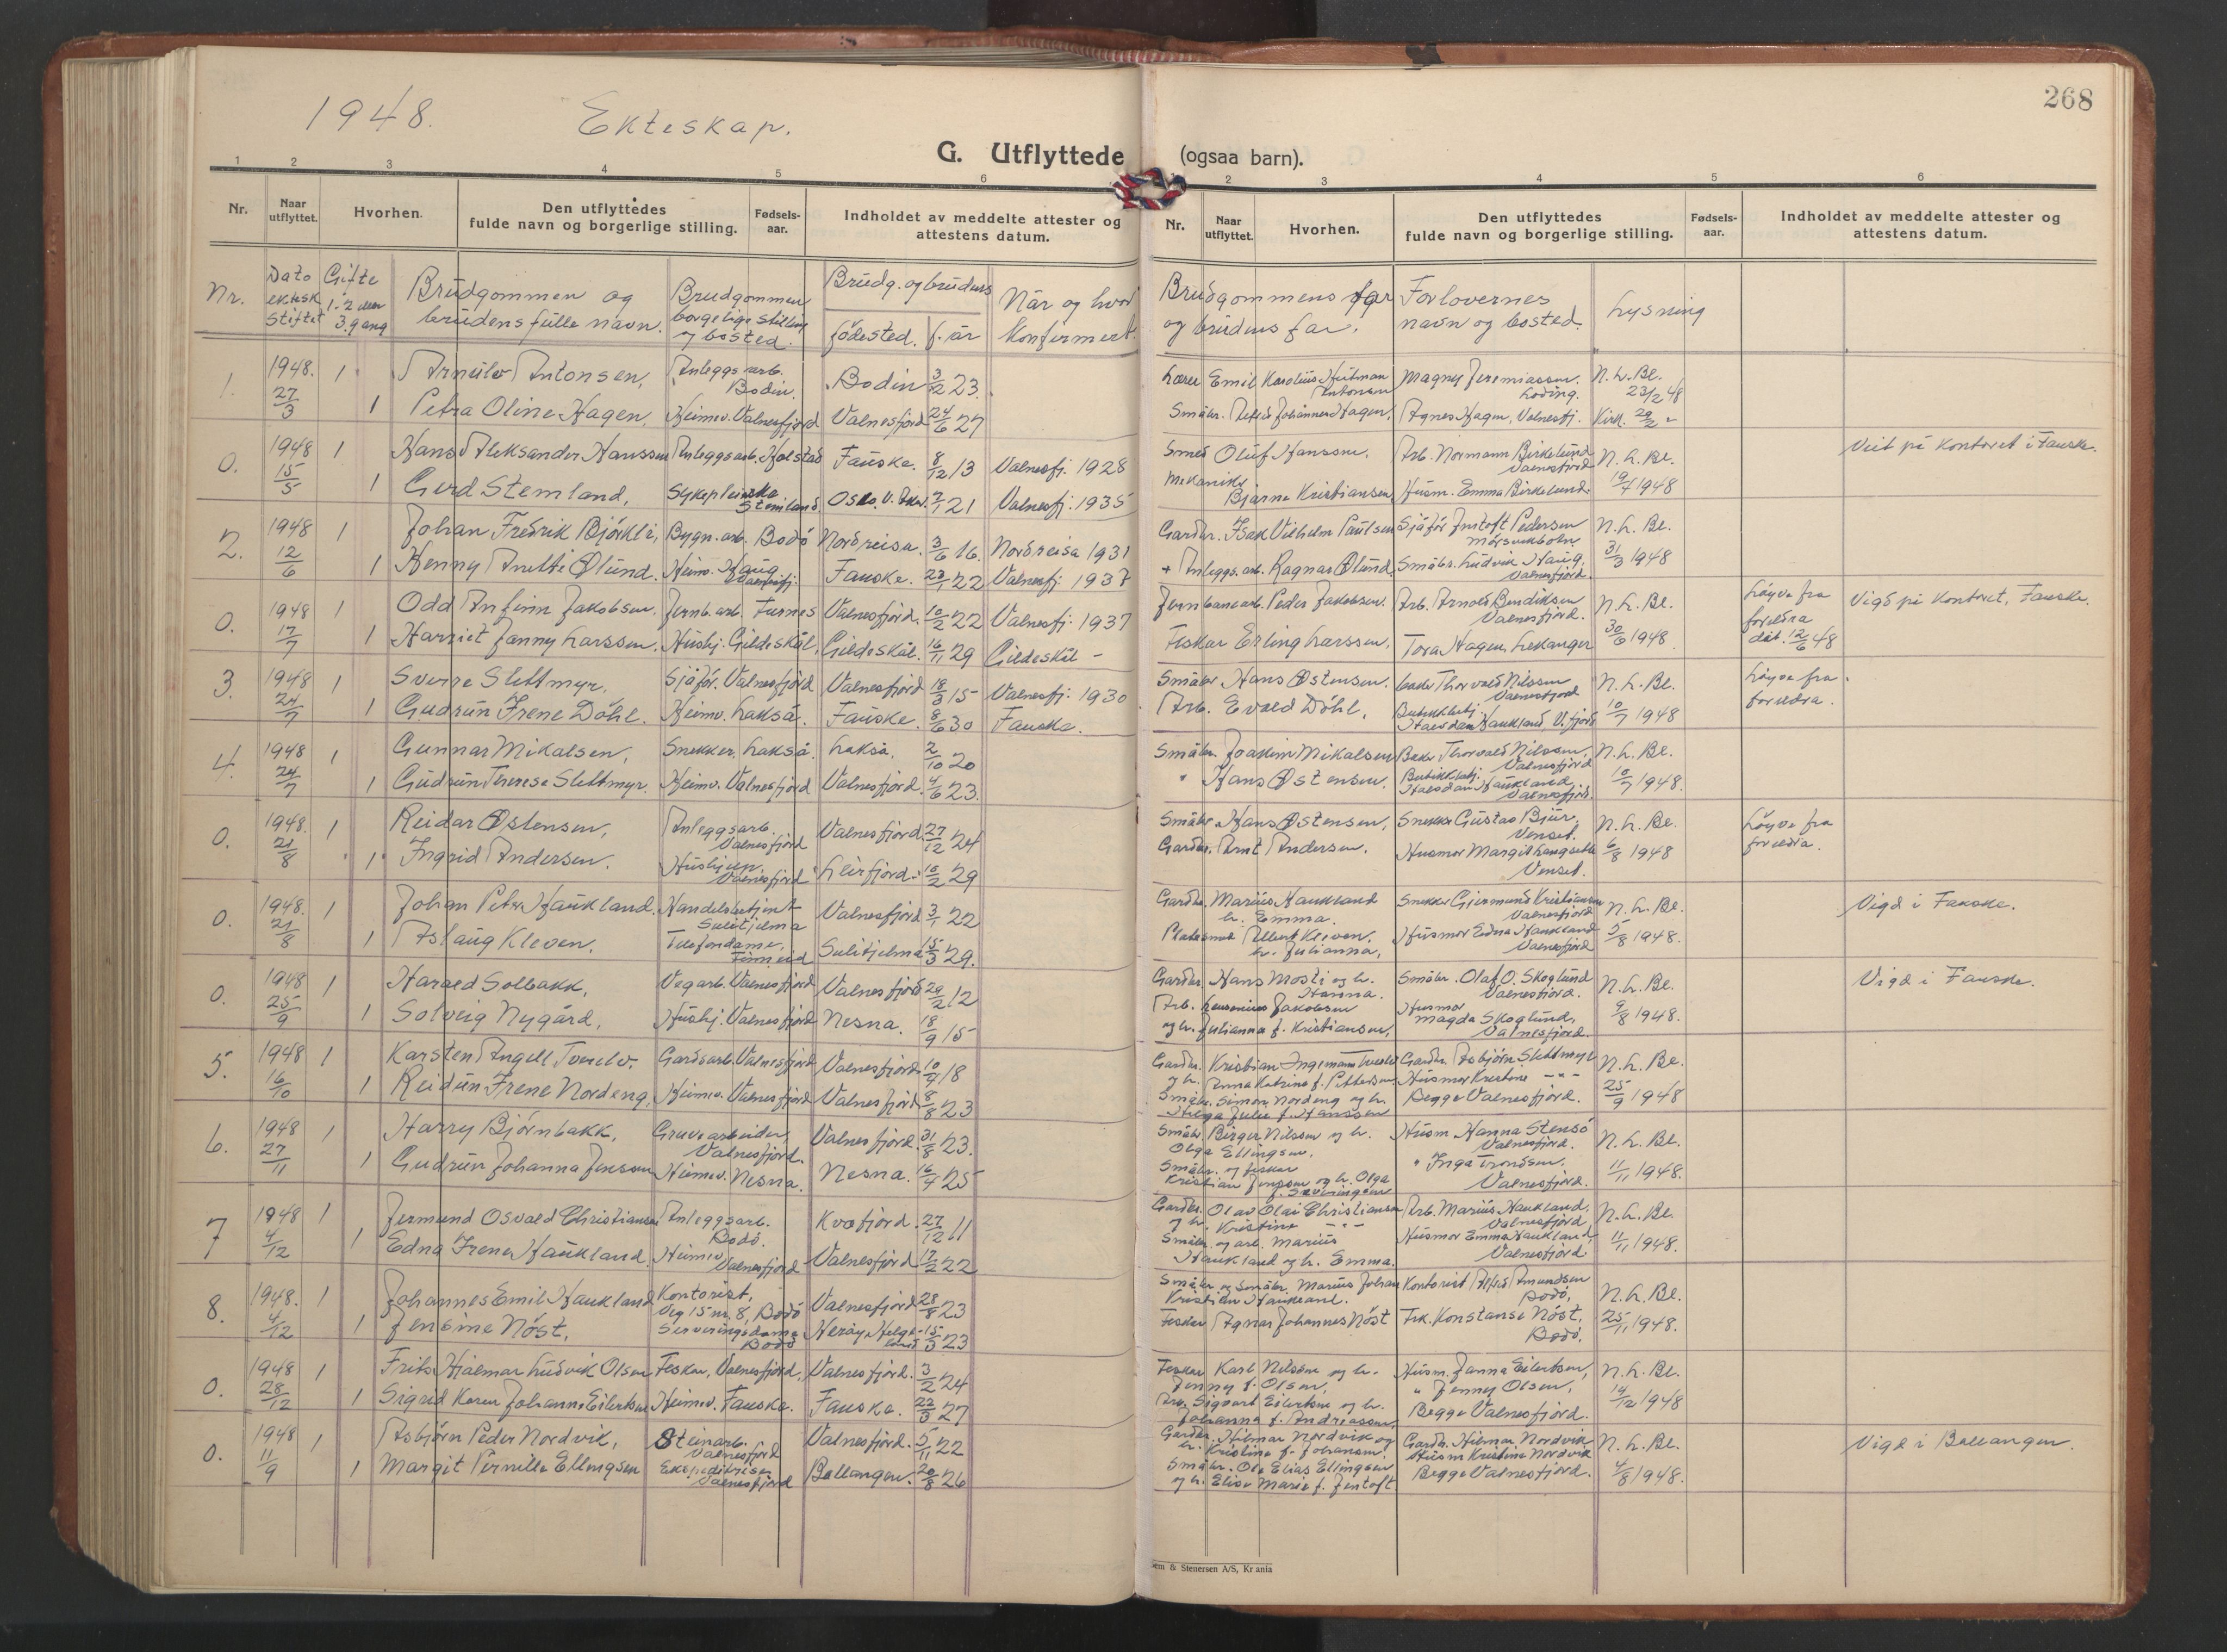 268
1948. Ekteskap.
G. Utflyttede (ogsaa barn).
1 2 3 4 5 6
2 3 4 5 6
Nr. Naar utflyttet. Hvorhen. Den utflyttedes fulde navn og borgerlige stilling. Fødsels-aar. Indholdet av meddelte attester og attestens datum.
Nr. Naar utflyttet. Hvorhen. Den utflyttedes fulde navn og borgerlige stilling. Fødsels-aar. Indholdet av meddelte attester og attestens datum.
Nr. Dato ektesk stiftet Gifte 1. 2 3. gang Brudgommen og brudens fulle navn. Brudgommen borgelige stilling og bosted. Brudg. og brudens fødested. f. år Når og hvor konfirmert.
Brudgommens far og brudens far. Forlovernes navn og bosted. Lysning
1. 1948. 27/3 1 Arnulv Antonsen, Anleggsarb. Bodin. Bodin 3/2 23.
1 Petra Oline Hagen, Heimev. Valnesfjord Valnesfjord 24/6 27
Lærer Emil Karolius Antonsen Magny Jeremiassen. Løding. N. L. Bl. 23/2 48
Småbr. Johannes Hagen, Agnes Hagen, Valnesfj. Kirk. 29/2 "
0. 1948 15/5 1 Hans Aleksander Hanssen Anleggsarb. Holstad Fauske. 8/12 13 Valnesfj. 1928
1 Gerd Stemland, Sykepleierske Stemland Oslo. V. Aker. 21 Valnesfj. 1935
Smed Oluf Hanssen, Arb. Normann Birkelund Valnesfjord N. L. Bl. 1948
Mekaniker Bjarne Kristiansen Husm. Emma Birkelund.
Viet på kontoret i Fauske.
2. 1948 12/6 1 Johan Fredrik Bjørkli, Bygn. arb. Bodø Nordreisa. 3/6 16. Nordreisa 1931
1 Henny Anette Ølund. Heimv. Haug Valnesfj. Fauske. 23/1 22 Valnesfj. 1937
Gardbr. Isak Vilhelm Paulsen Sjåfør Pedersen Mørsvikbotn N. L. Bl. 31/3 1948
+ Anleggs. arb. Ragnar Ølund. Småbr. Ludvik Haug, Valnesfjord.
0. 1948 17/7 1 Odd Anfinn Jakobsen. Jernb. arb. Furnes Valnesfjord. 10/2 22 Valnesfj. 1937
1 Harriet Janny Larssen. Hushj. Gildeskål. Gildeskål. 16/11 29 Gildeskål -
Jernbanearb. Peder Jakobsen. Arb. Arnold Bendiksen Valnesfjord. N. L. Bl. 30/6 1948
Fiskar Erling Larssen, Tora Hagen, Lekanger
Løyve fra foreldra dat. 12/6 48 Vigd på kontoret, Fauske.
3. 1948 24/7 1 Sverre Slettmyr, Sjåfør. Valnesfjord Valnesfjord 18/3 15 Valnesfj. 1930
1 Gudrun Irene Døhl. Heimv. Lakså. Fauske. 8/6 30 Fauske.
Småbr Hans Østensen. Baker Thorvald Nilssen Valnesfjord N. L. Bl. 10/7 1948
Arb. Evald Døhl, Butikkbetj. Haukland, V. fjord
Løyve fra foreldra.
4. 1948 24/7 1 Gunnar Mikalsen, Snekker. Lakså Lakså. 2/10 20
1 Gudrun Therese Slettmyr. Heimv. Valnesfjord Valnesfjord. 4/6 23.
Småbr. Joakim Mikalsen Baker Thorvald Nilssen, Valnesfjord N. L. Bl. 10/7 1948.
" Hans Østensen. Butikkbetj. Haukland, Valnesfjord.
0. 1948. 21/8 1 Reidar Østensen, Anleggsarb. Valnesfjord Valnesfjord 27/12 24
1 Ingrid Andersen. Hushjelp Valnesfjord Leirfjord. 10/2 29
Småbr Hans Østensen, Snekker Gustav Bjur, Venset. N. L. Bl. 6/8 1948
Gardbr. Arnt Andersen. Husmor Margit Langseth Venset.
Løyve fra foreldra.
0. 1948. 21/8 1 Johan Peter Haukland. Handelsbetjent Sulitjelma Valnesfjord 3/1 22
1 Aslaug Kleven. Telefondame, Finneid Sulitjelma 15/3 29.
Gardbr. Marius Haukland h. Emma. Snekker Gjermund Kristiansen Valnesfjord N. L. Bl. 5/8 1948.
Platesmed Albert Kleven. h. Julianna, Husmor Edna Haukland Valnesfjord
Vigd i Fauske.
0. 1948 25/9 1 Harald Solbakk, Vegarb. Valnesfjord Valnesfjord 29/2 12
1 Solveig Nygård, Hushj. Valnesfjord Nesna. 18/9 15
Gardbr. Hans Mosti og h. Hanna. Småbr. Olaf O. Skoglund Valnesfjord. N. L. Bl. 9/8 1948.
Arb. Jakobsen og h. Julianna f. Kristiansen, Husmor Magda Skoglund, Valnesfjord.
Vigd i Fauske.
5. 1948 16/10 1 Karsten Angell Tverelv. Gardsarb. Valnesfjord Valnesfjord 10/9 18
1 Reidun Irene Nordeng, Heimev. Valnesfjord Valnesfjord 8/8 23
Gardbr. Kristian Ingemann Gardbr. Asbjørn Slettmyr N. L. Bl. 25/9 1948
og h. Anna Katrine f. Pettersen, Husmor Kristine -"-
Småbr. Simon Nordeng og h. Helga Julie f. Hanssen Begge Valnesfjord.
6. 1948 27/11 1 Harry Bjørnbakk, Gruvearbeider, Valnesfjord. Valnesfjord. 31/8 23.
1 Gudrun Johanna Jenssen Heimev. Nesna. Nesna. 16/4 25
Småbr Birger Nilssen og h. Olga Ellingsen. Husm Hanna Stensø Valnesfjord. N. L. Bl. 11/11 1948.
Småbr. og fisker Kristian Jenssen og h. Olga f. Severinsen " Inga Trondsen. Valnesfjord.
7 1948 4/12 1 Jermund Osvald Christiansen Anleggsarb. Bodø. Kvefjord. 27/12 11
1 Edna Irene Haukland. Heimev. Valnesfjord Valnesfjord 17/2 22
Gardbr. Olav Olai Christiansen og h. Kristine -"- Arb. Marius Haukland, Valnesfjord N. L. Bl. 11/11 1948.
Småbr. og arb. Marius Haukland og h. Emma. Husmor Emma Haukland, Valnesfjord
8. 1948. 4/12 1 Johannes Emil Haukland Kontorist, Veg 15 nr. 8, Bodø Valnesfjord 28/8 23
1 Jensine Nøst, Serveringsdame Bodø Herøy, Helgeland 15/3 23
Småbr. Marius Johan Kristian Haukland. Kontorist Alfred Amundsen Bodø, N. L. Bl. 25/11 1948.
Fisker Agnar Johannes Nøst Frk. Konstanse Nøst, Bodø.
0. 1948 28/12 1 Frits Hjalmar Ludvik Olsen Fisker, Valnesfjord, Valnesfjord. 3/2 24
1 Sigrid Karen Johanne Eilertsen Heimev. Fauske. Fauske. 22/3 27
Fisker Karl Nilsen og h. Jenny f. Olsen, Husm. Janna Eilertsen, N. L. Bl. 14/12 1948
Arb. Sigvart Eilertsen og h. Johanna f. Andreassen, " Jenny Olsen, Begge Valnesfjord.
0. 1948 11/9 1 Asbjørn Peder Nordvik, Steinarb. Valnesfjord Valnesfjord. 5/11 22
1 Margit Pernelle Ellingsen Ekspeditrise Valnesfjord Ballangen. 20/8 26
Gardbr. Hilmar Nordvik og h. Kristine f. Johansen. Gardbr. Hilmar Nordvik N. L. Bl. 4/8 1948.
Småbr. Ole Elias Ellingsen og h. Elise Marie f. Jentoft Husm Kristine Nordvik Begge Valnesfjord.
Vigd i Ballangen.
Sem & Stenersen A/S, Kr ania